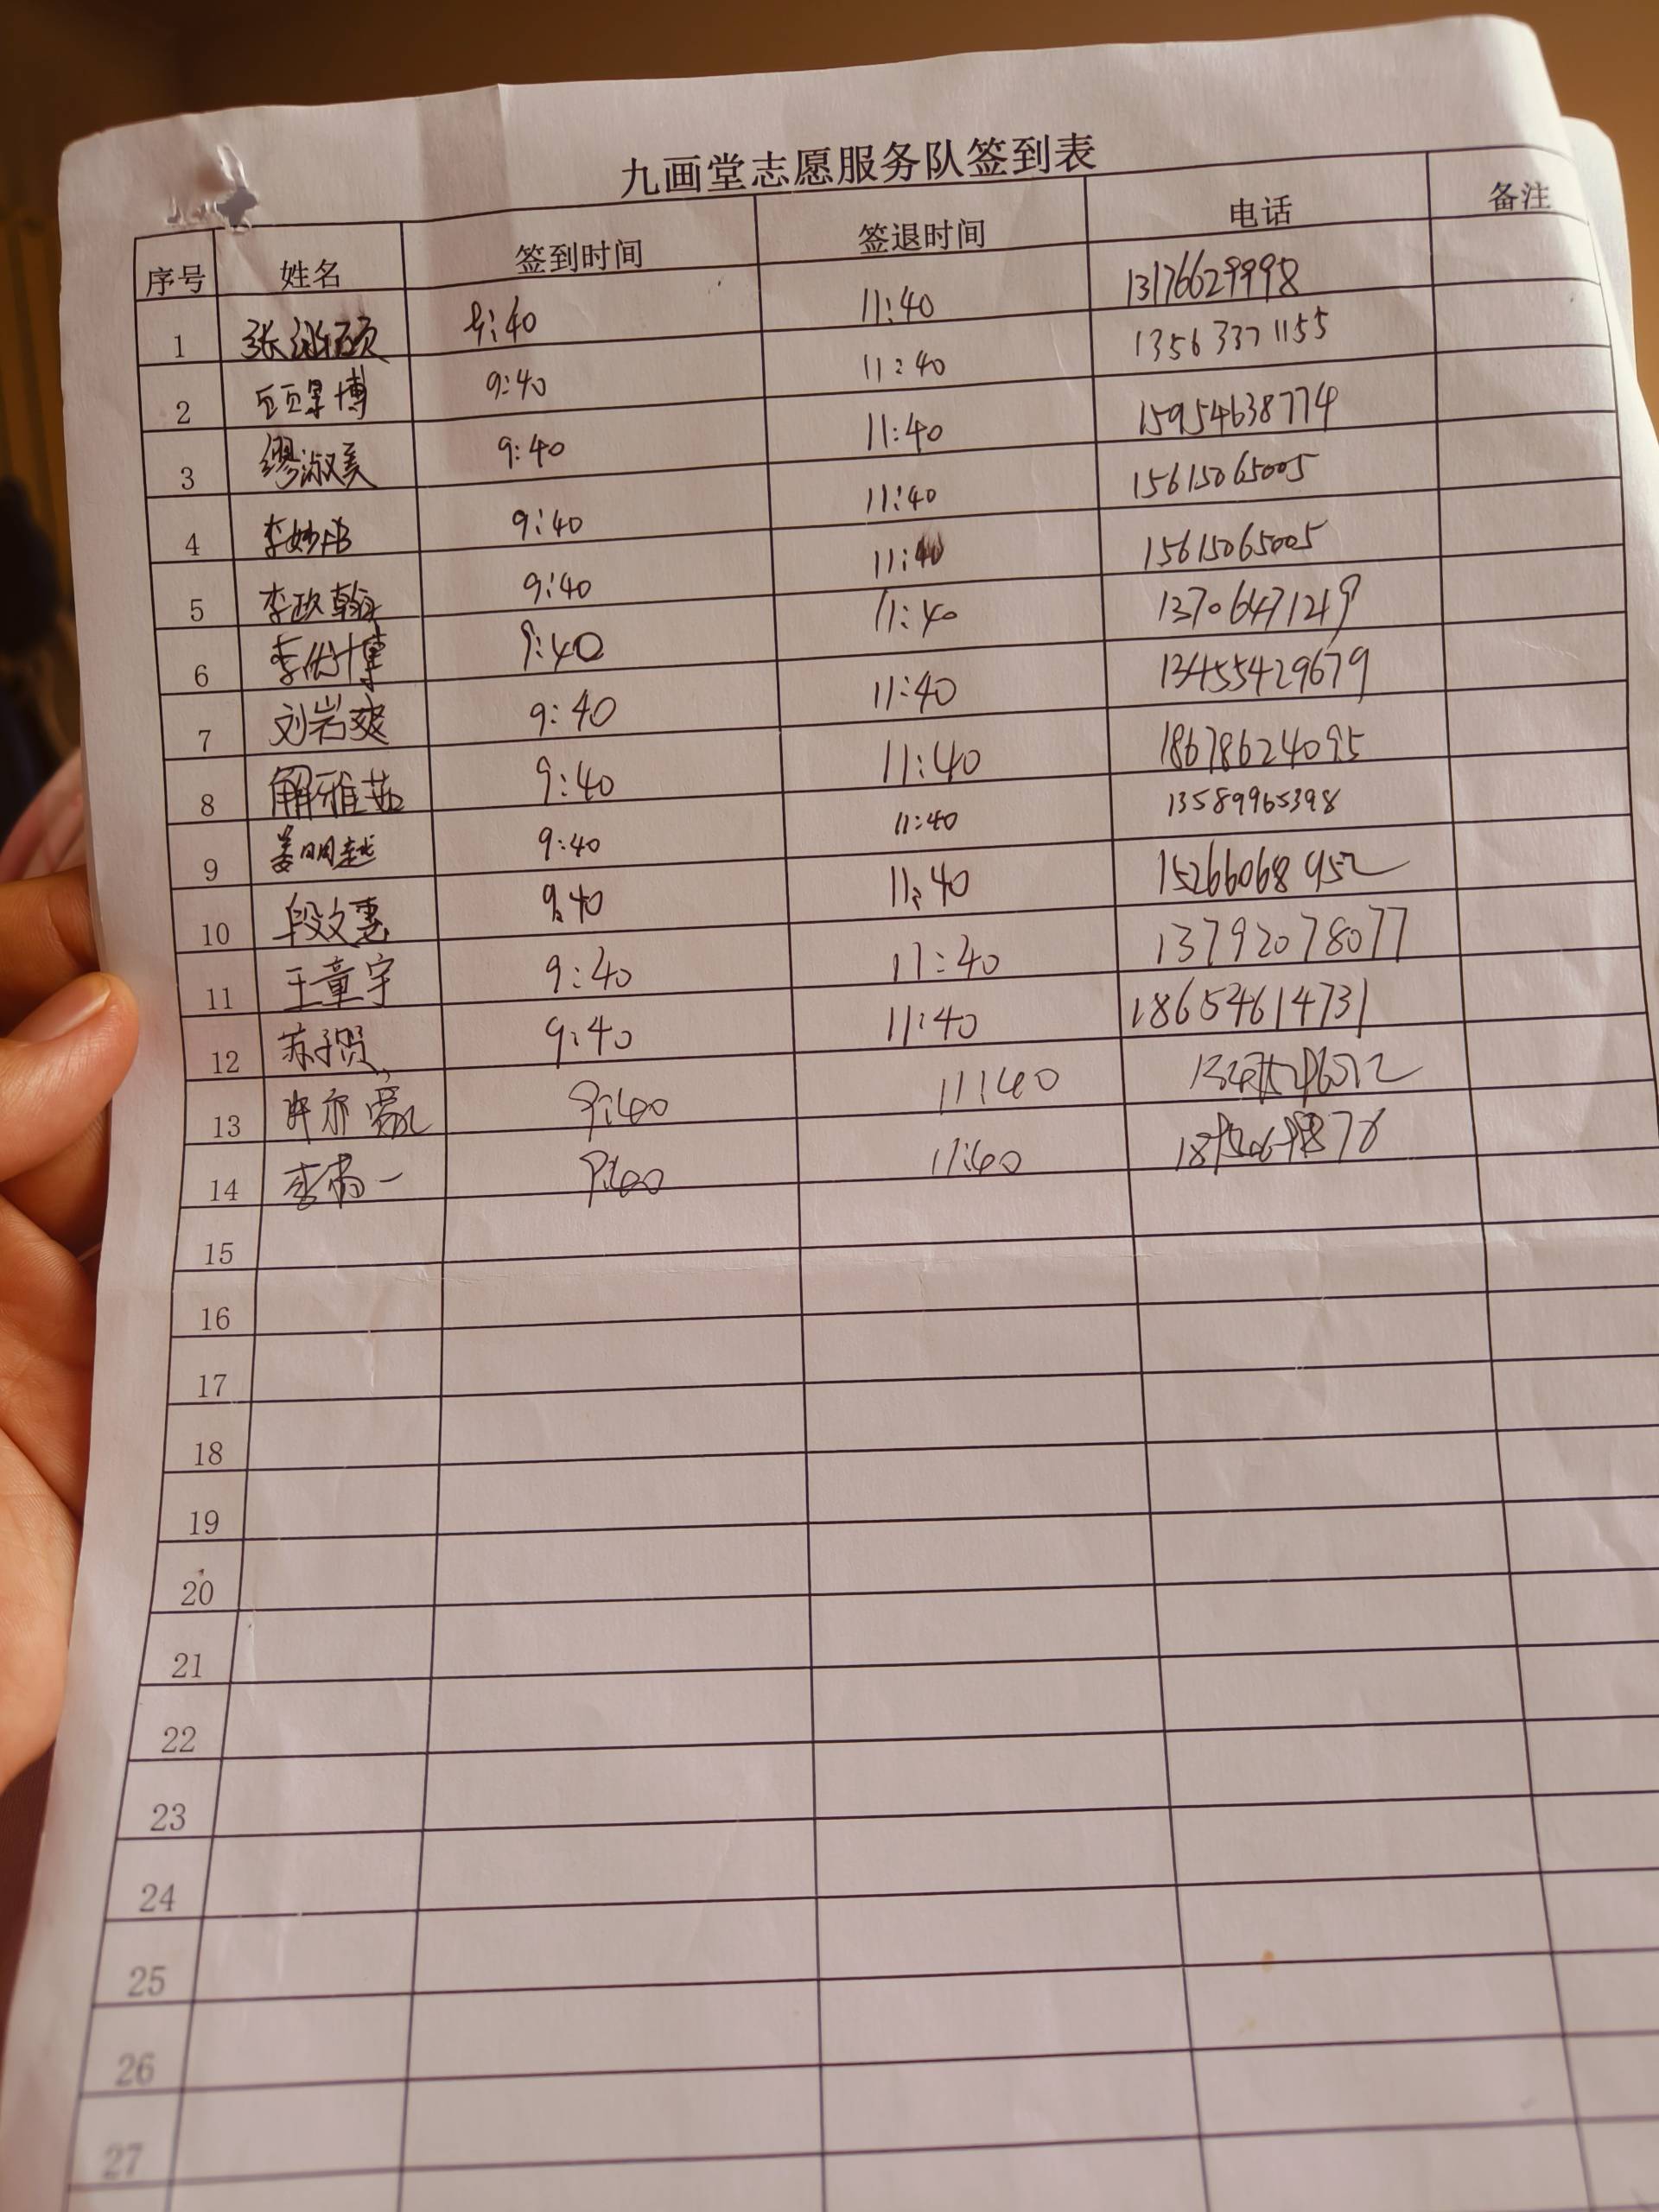 九画堂志愿服务队签到表
序号 姓名 签到时间 签退时间 电话 备注
1 张 硕 9:40 11:40 13176629998
2 博 9:40 11:40 13563371155
3 缪淑美 9:40 11:40 15954638774
4 李妙彤 9:40 11:40 15615065005
5 李政翰 9:40 11:40 15615065005
6 李优博 9:40 11:40 13706471219
7 刘岩爽 9:40 11:40 13455429679
8 解雅茹 9:40 11:40 18678624095
9 姜明越 9:40 11:40 13589965398
10 段文惠 9:40 11:40 15266068952
11 王童宇 9:40 11:40 13792078077
12 苏子贤 9:40 11:40 18654614731
13 许亦 9:40 11:40
14 李 一 9:40 11:40
15
16
17
18
19
20
21
22
23
24
25
26
27